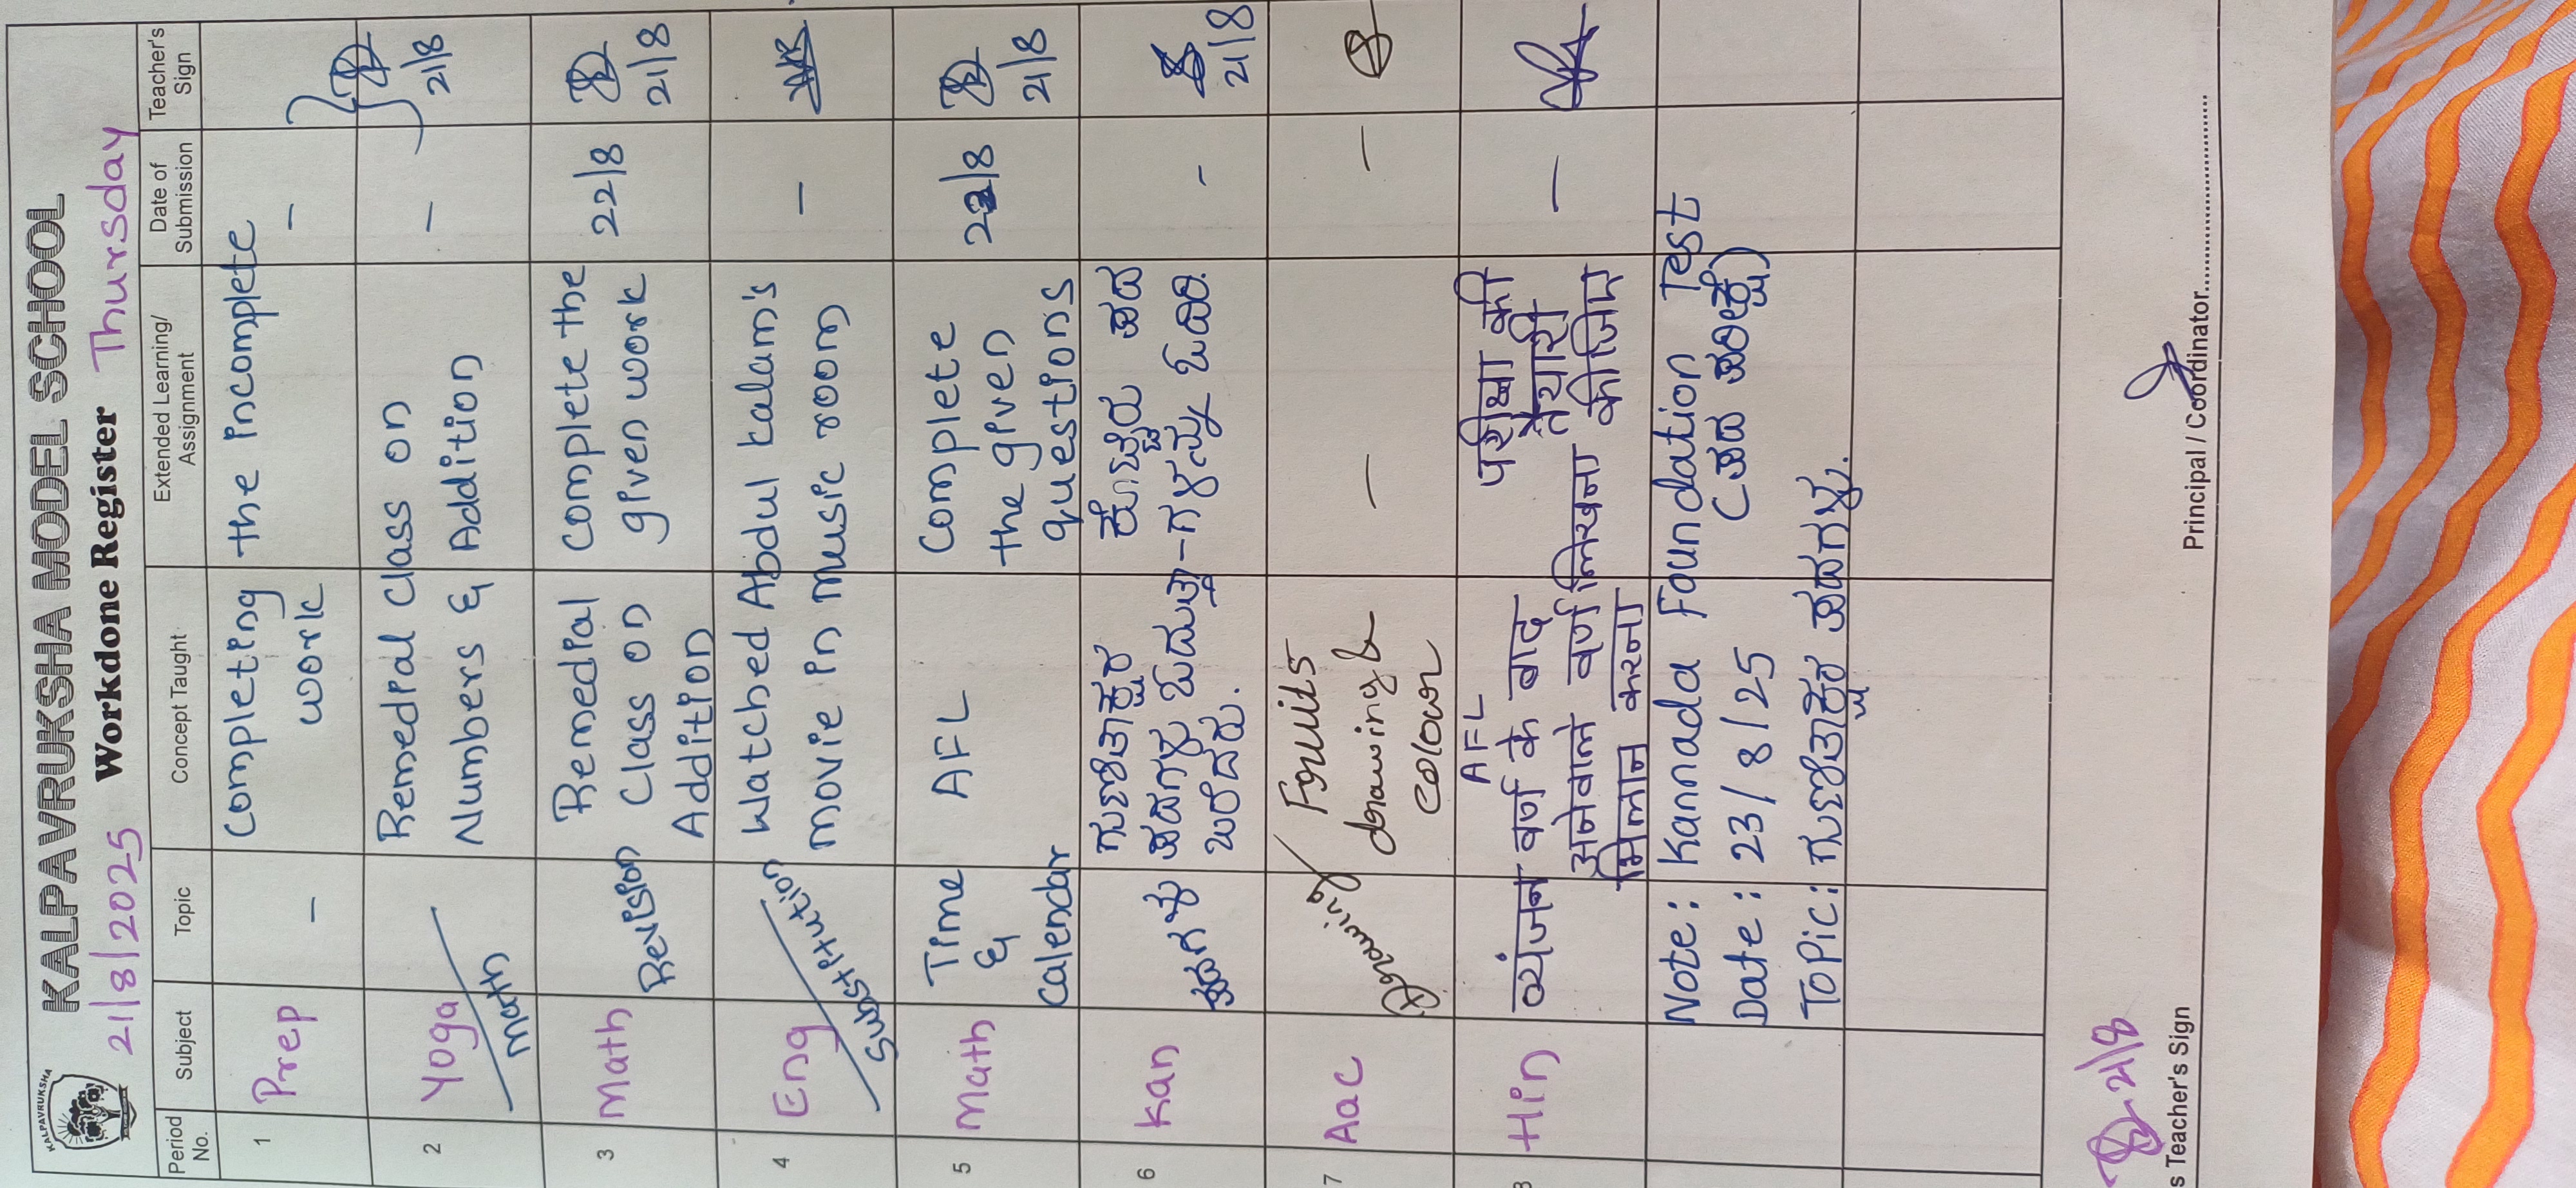 KALPAVRUKSHA
KALPAVRUKSHA MODEL SCHOOL
21/8/2025 Workdone Register Thursday
Period No. Subject Topic Concept Taught Extended Learning/ Assignment Date of Submission Teacher's Sign
1 Prep - Completing the incomplete -
work
2 Yoga Remedial class on - 21/8
Math Numbers & Addition
3 Math Revision Remedial Class on Addition Complete the given work 22/8 21/8
4 Eng Watched Abdul kalam's -
Substitution movie in music room
5 Math Time & Calendar AFL Complete the given questions 22/8 21/8
6 Kan ಪದಗಳು ಗುಣಿತಾಕ್ಷರ ಪದಗಳ ಬರೆದರು. ಪದ - 21/8
7 Aac Drawing Fruits drawing & colour - -
8 Hin व्यंजन AFL
वर्ण के बाद
अनेवाले वर्ण लिखना
मिलान करना
परीक्षा की
तैयारी
कीजिए
-
Note: Kannada Foundation Test
Date: 23/8/25 (ಪದ ಪರೀಕ್ಷೆ)
Topic: ಗುಣಿತಾಕ್ಷರ ಪದಗಳು.
21/8
s Teacher's Sign Principal / Coordinator